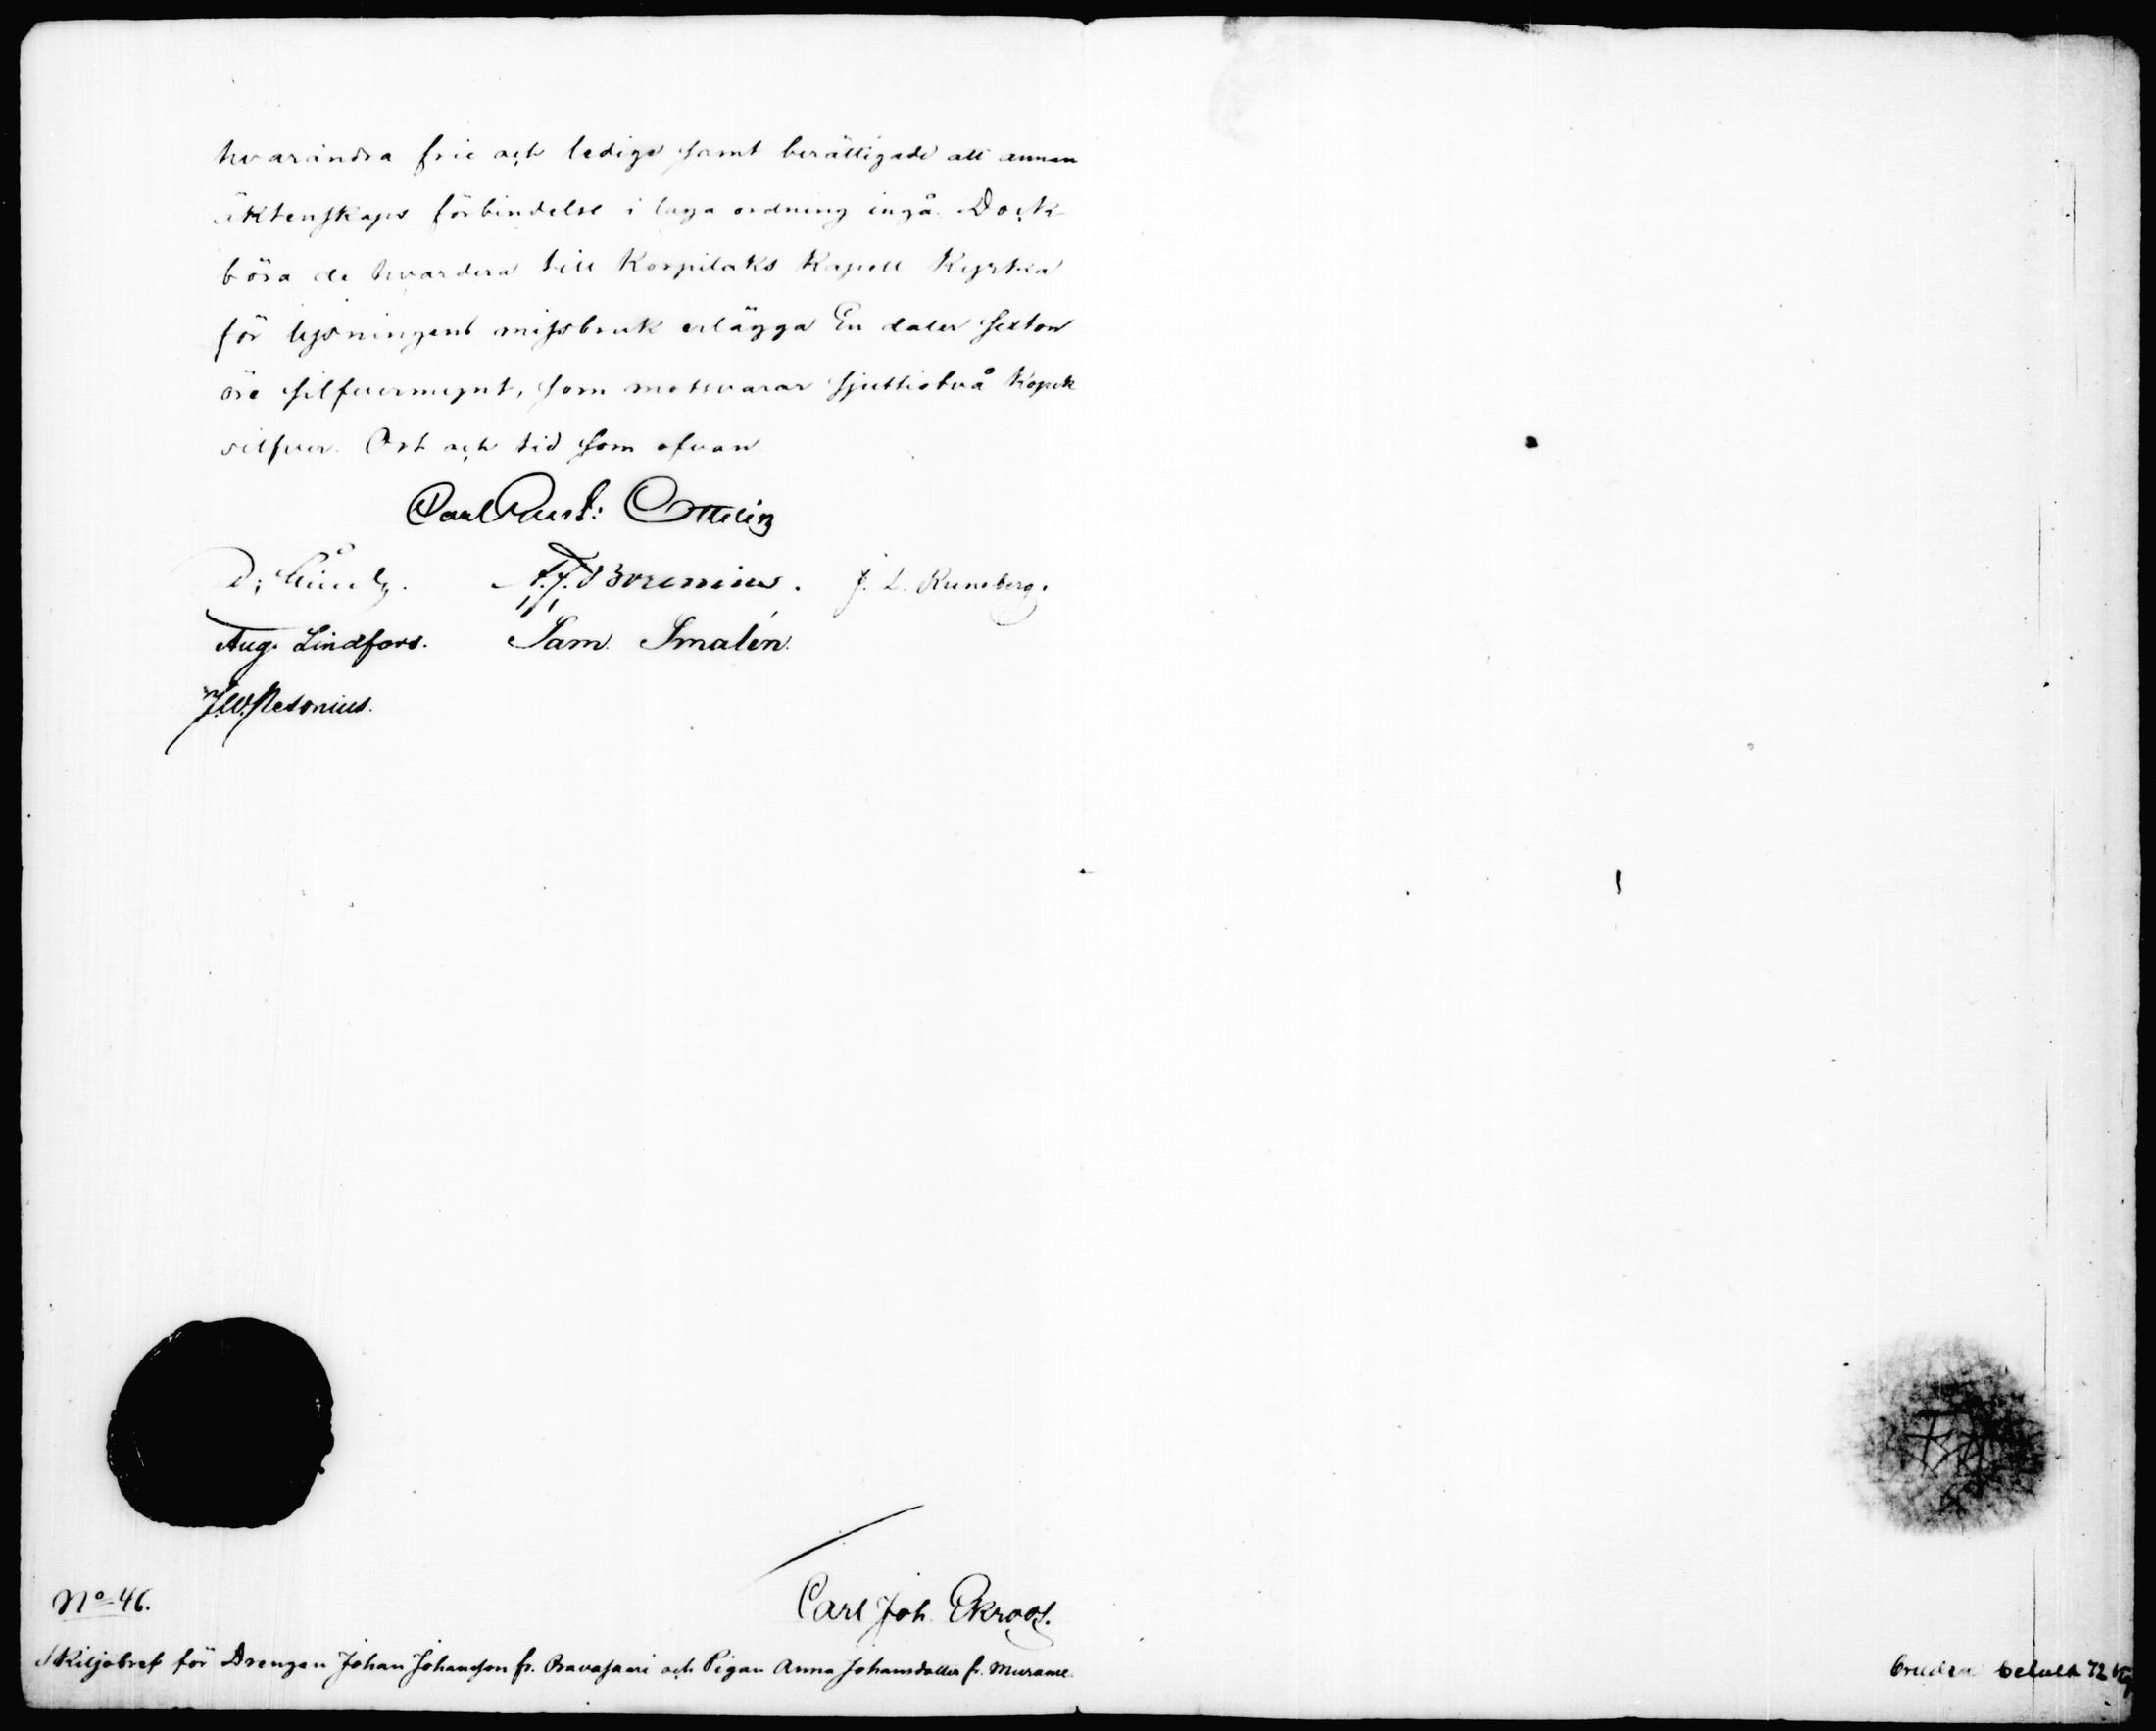 hvarandra frie och ledige samt berättigade att annan
äktenskaps förbindelse i laga ordning ingå. Dock
böra de hvardera till Korpilaks Kapell Kyrka
för lysningens missbruk erlägga En daler sexton
öre silfvermynt, som motsvarar sjuttiotvå Kopek
silfver. Ort och tid som ofvan
Carl Ottelin
J. L. Runeberg.
Aug. Lindfors. Sam. Smalén.
No 46.
Carl Joh. Ekroos.
Skiljobref för Drengen Johan Johansson fr. och Pigan Anna Johansdotter fr. Murame.
bruden betalt 72 Kop